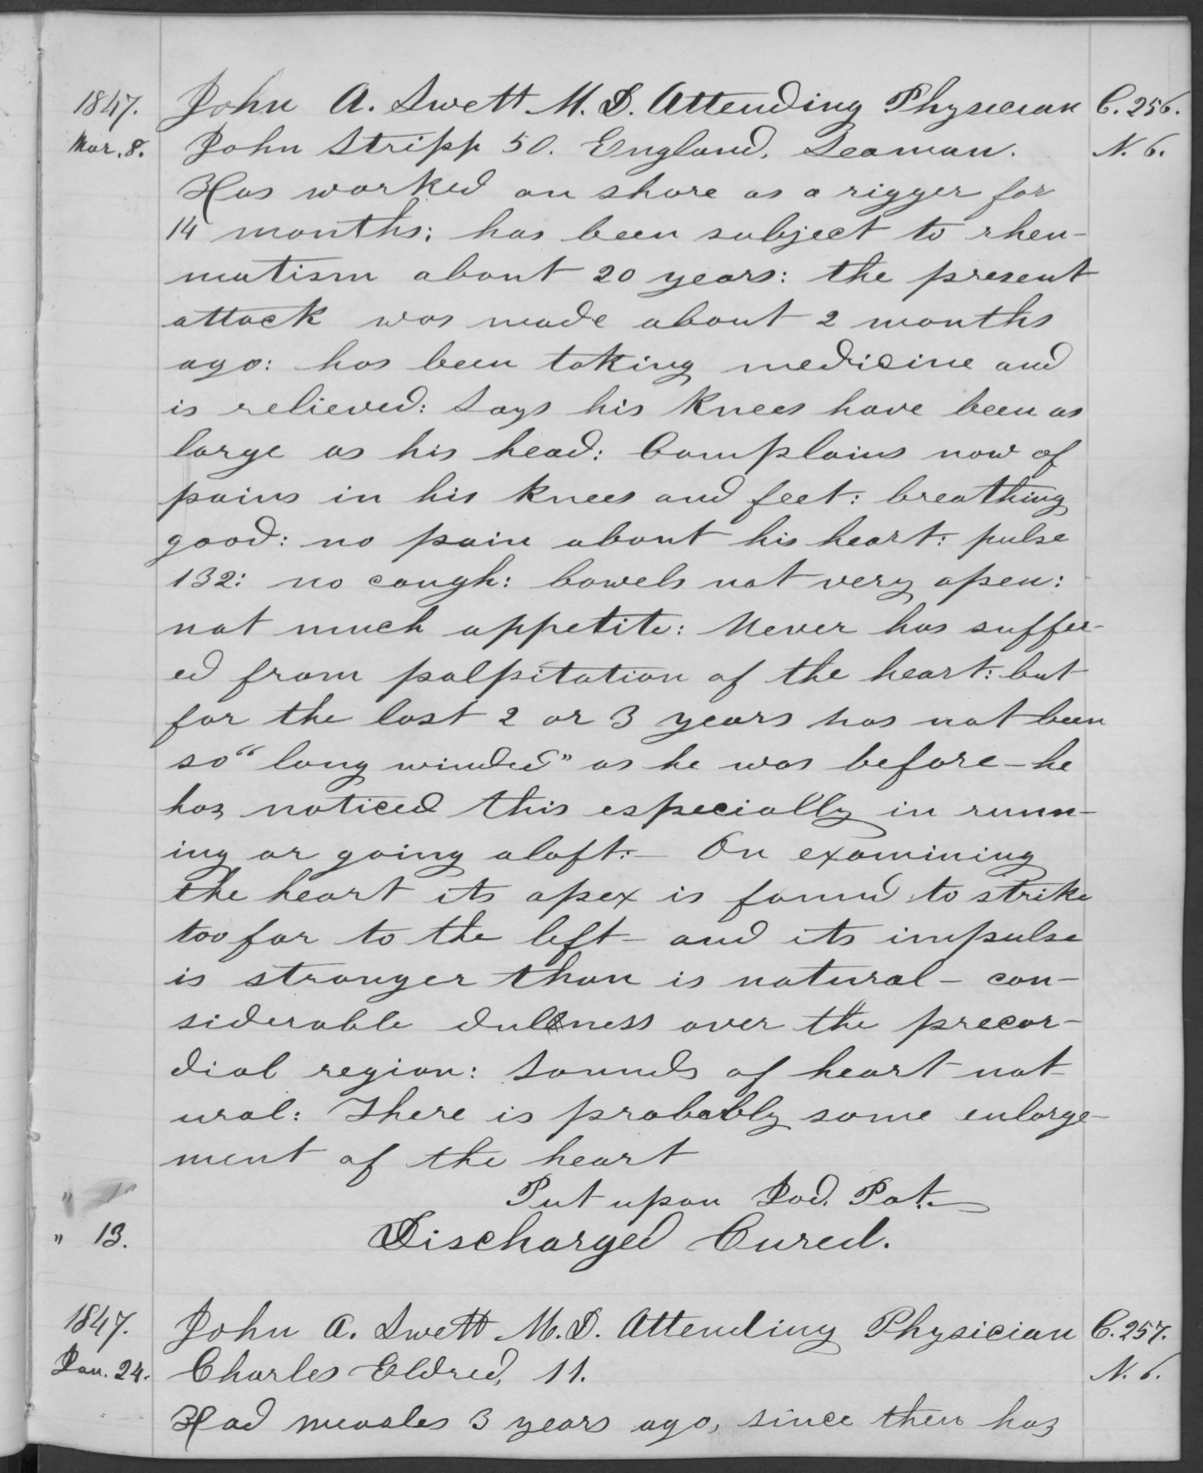 1847. John A. Swett M.D. Attending Physician C. 256.
Mar. 8. John Stripp 50. England. Seaman. N. 6.
Has worked on shore as a rigger for
14 months: has been subject to rheu-
matism about 20 years: the present
attack was made about 2 months
ago: has been taking medicine and
is relieved: Says his knees have been as
large as his head: Complains now of
pains in his knees and feet: breathing
good: no pain about his heart: pulse
132: no cough: bowels not very open:
not much appetite: Never has suffer-
ed from palpitation of the heart: but
for the last 2 or 3 years has not been
so "long winded" as he was before - he
has noticed this especially in runn-
ing or going aloft:- On examining
the heart its apex is found to strike
too far to the left - and its impulse
is stronger than is natural - con-
siderable dullness over the precor-
dial region: Sounds of heart nat
ural: There is probably some enlarge-
ment of the heart
" Put upon Iod. Pot.
" 13. Discharged Cured.
1847. John A. Swett M.D. Attending Physician C. 257.
Jan. 24. Charles Eldred, 11. N. 6.
Had measles 3 years ago, since then has